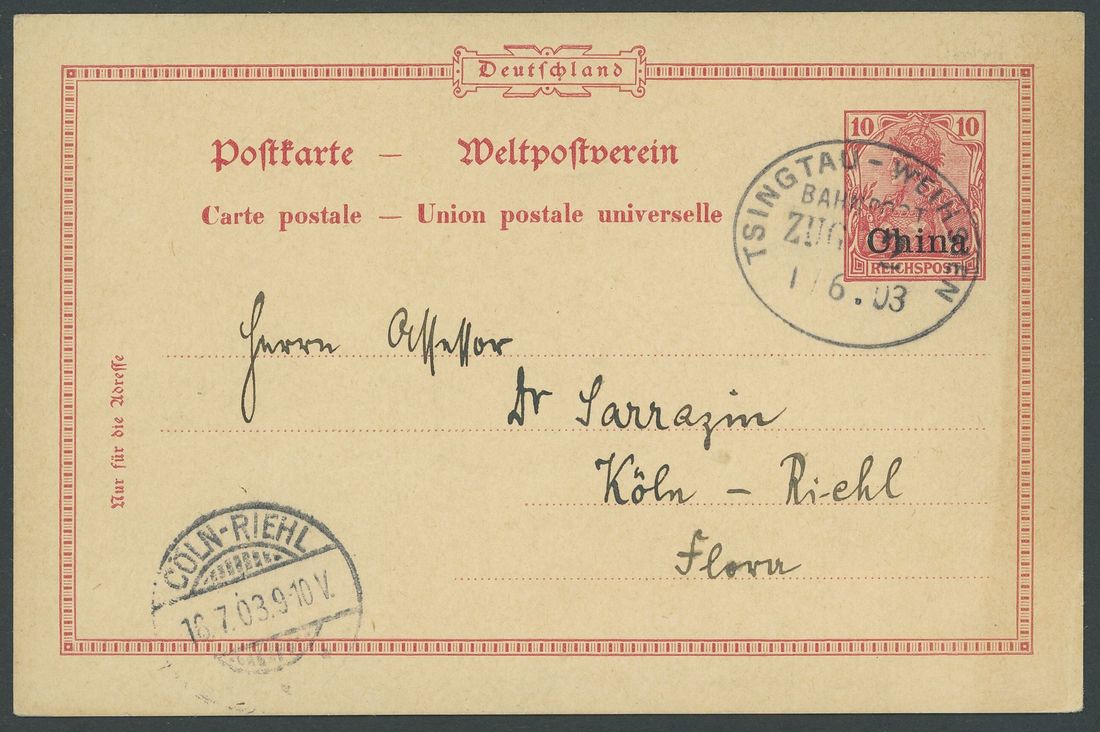 Deutschland
Postkarte — Weltpostverein
Carte postale — Union postale universelle
10 10
China
REICHSPOST
TSINGTAU - WEIHSIEN
BAHNPOST
ZUG 2
1/6.03
Herrn Assessor
Dr Sarrazin
Köln - Riehl
Flora
Nur für die Adresse
CÖLN-RIEHL
18.7.03.9-10V.